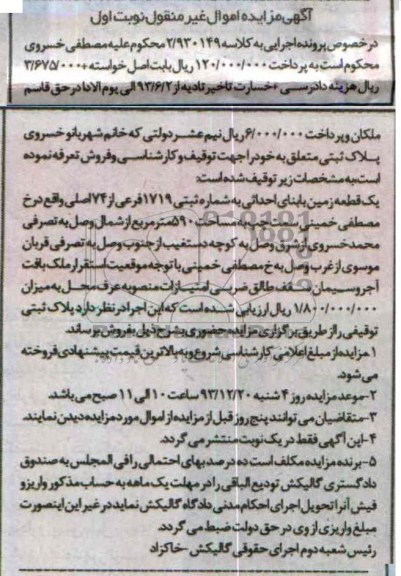 آگهی مزایده اموال غیر منقول نوبت اول
در خصوص پرونده اجرایی به کلاسه ۲/۹۳۰۱۴۹ محکوم علیه مصطفی خسروی
محکوم است به پرداخت ۱۲۰/۰۰۰/۰۰۰ ریال بابت اصل خواسته +۳/۶۷۵/۰۰۰
ریال هزینه دادرسی +خسارت تاخیر تادیه از ۹۳/۶/۲ الی یوم الادا در حق قاسم
ملکان و پرداخت ۶/۰۰۰/۰۰۰ ریال نیم عشر دولتی که خانم شهربانو خسروی
پلاک ثبتی متعلق به خود را جهت توقیف و کارشناسی و فروش تعرفه نموده
است به مشخصات زیر توقیف شده است:
یک قطعه زمین با بنای احداثی به شماره ثبتی ۱۷۱۹ فرعی از ۷۴ اصلی واقع در خ
مصطفی خمینی به مساحت ۵۹۰ متر مربع از شمال وصل به تصرفی
محمد خسروی از شرق وصل به کوچه دستغیب از جنوب وصل به تصرفی قربان
موسوی از غرب وصل به خ مصطفی خمینی با توجه موقعیت استقرار ملک بافت
آجر و سیمان سقف طاق ضربی امتیازات منصوبه عرف محل به میزان
۱/۸۰۰/۰۰۰/۰۰۰ ریال ارزیابی شده است که این اجرا در نظر دارد پلاک ثبتی
توقیفی را از طریق برگزاری مزایده حضوری بشرح ذیل بفروش برساند.
۱.مزایده از مبلغ اعلامی کارشناسی شروع و به بالاترین قیمت پیشنهادی فروخته
می شود.
۲-موعد مزایده روز ۴ شنبه ۹۳/۱۲/۲۰ ساعت ۱۰ الی ۱۱ صبح می باشد.
۳-متقاضیان می توانند پنج روز قبل از مزایده از اموال مورد مزایده دیدن نمایند.
۴-این آگهی فقط در یک نوبت منتشر می گردد.
۵-برنده مزایده مکلف است ده درصد بهای احتمالی را فی المجلس به صندوق
دادگستری گالیکش تودیع الباقی را در مهلت یک ماهه به حساب مذکور واریز و
فیش آنرا تحویل اجرای احکام مدنی دادگاه گالیکش نماید در غیر این اینصورت
مبلغ واریزی از وی در حق دولت ضبط می گردد.
رئیس شعبه دوم اجرای حقوقی گالیکش - خاکزاد